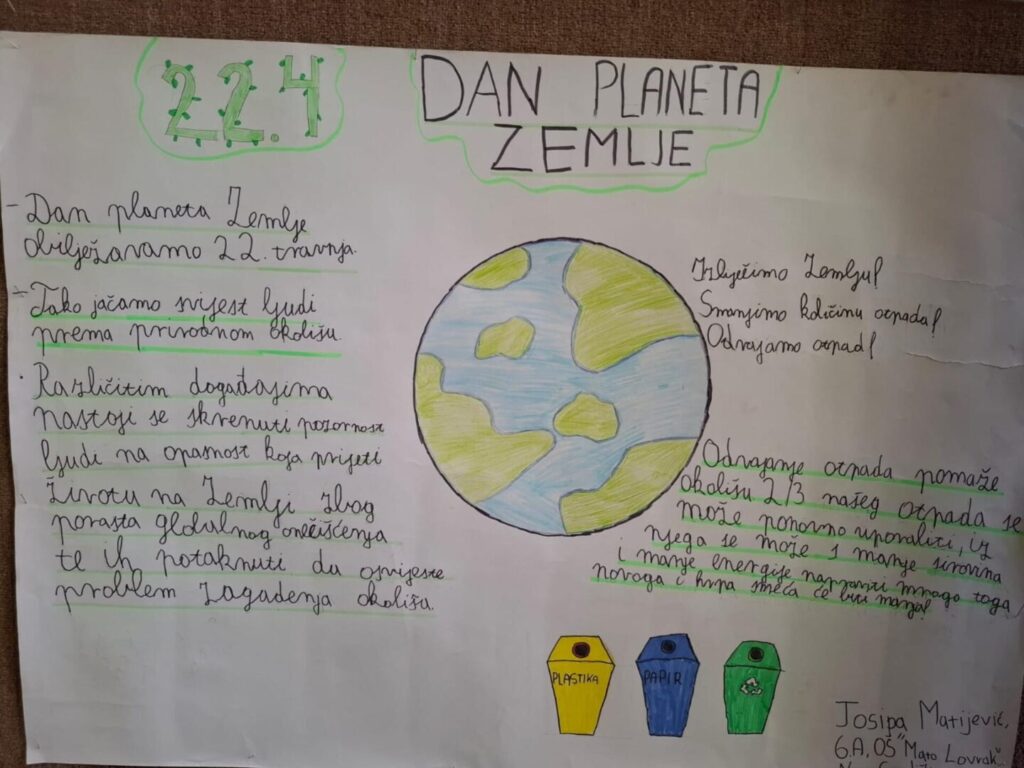 22.4
DAN PLANETA
ZEMLJE
- Dan planeta Zemlje
obilježavamo 22. travnja.
- Tako jačamo svijest ljudi
prema prirodnom okolišu.
· Različitim događajima
nastoji se skrenuti pozornost
ljudi na opasnost koja prijeti
životu na Zemlji zbog
porasta globalnog onečišćenja
te ih potaknuti da osvijeste
problem zagađenja okoliša.
Izliječimo Zemlju!
Smanjimo količinu otpada!
Odvajamo otpad!
Odvajanje otpada pomaže
okolišu 2/3 našeg otpada se
može ponovno uporabiti, iz
njega se može s manje sirovina
i manje energije napraviti mnogo toga
novoga i hrpa smeća će biti manja!
PLASTIKA
PAPIR
Josipa Matijević,
6A, OŠ "Mato Lovrak"